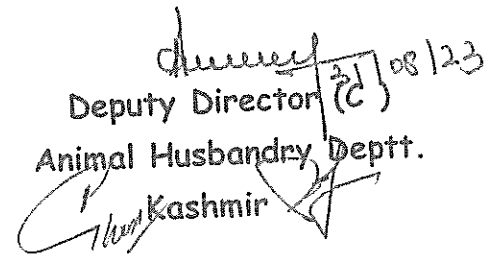 31/08/23
Deputy Director (C)
Animal Husbandry Deptt.
Kashmir